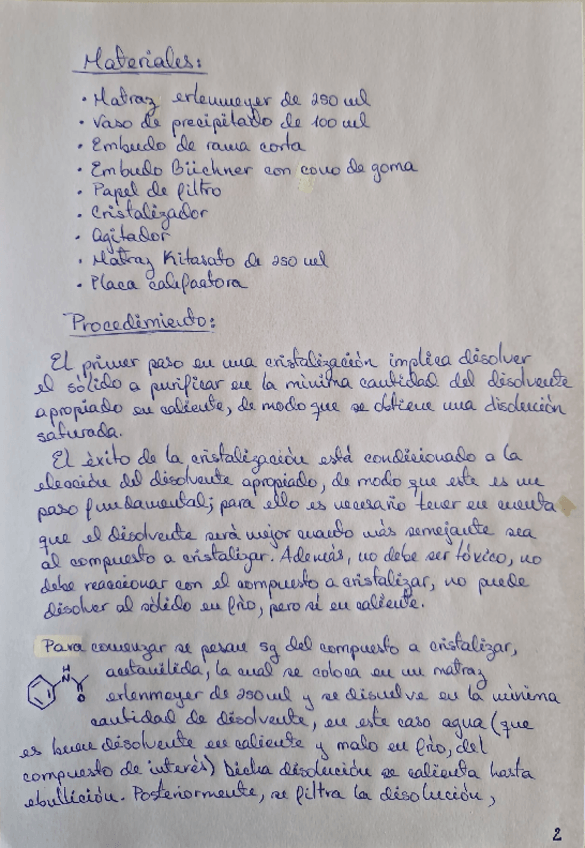 Materiales:
• Matraz erlenmeyer de 250 ml
• Vaso de precipitado de 100 ml
• Embudo de rama corta
• Embudo Büchner con cono de goma
• Papel de filtro
• Cristalizador
• Agitador
• Matraz Kitasato de 250 ml
• Placa calefactora
Procedimiento:
El primer paso en una cristalización implica disolver
el sólido a purificar en la mínima cantidad del disolvente
apropiado en caliente, de modo que se obtiene una disolución
saturada.
El éxito de la cristalización está condicionado a la
elección del disolvente apropiado, de modo que este es un
paso fundamental; para ello es necesario tener en cuenta
que el disolvente será mejor cuanto más semejante sea
al compuesto a cristalizar. Además, no debe ser tóxico, no
debe reaccionar con el compuesto a cristalizar, no puede
disolver al sólido en frío, pero sí en caliente.
Para comenzar se pesan 5g del compuesto a cristalizar,
acetanilida, la cual se coloca en un matraz
erlenmeyer de 250 ml y se disuelve en la mínima
cantidad de disolvente, en este caso agua (que
es buen disolvente en caliente y malo en frío, del
compuesto de interés) Dicha disolución se calienta hasta
ebullición. Posteriormente, se filtra la disolución,
H
N
O
2